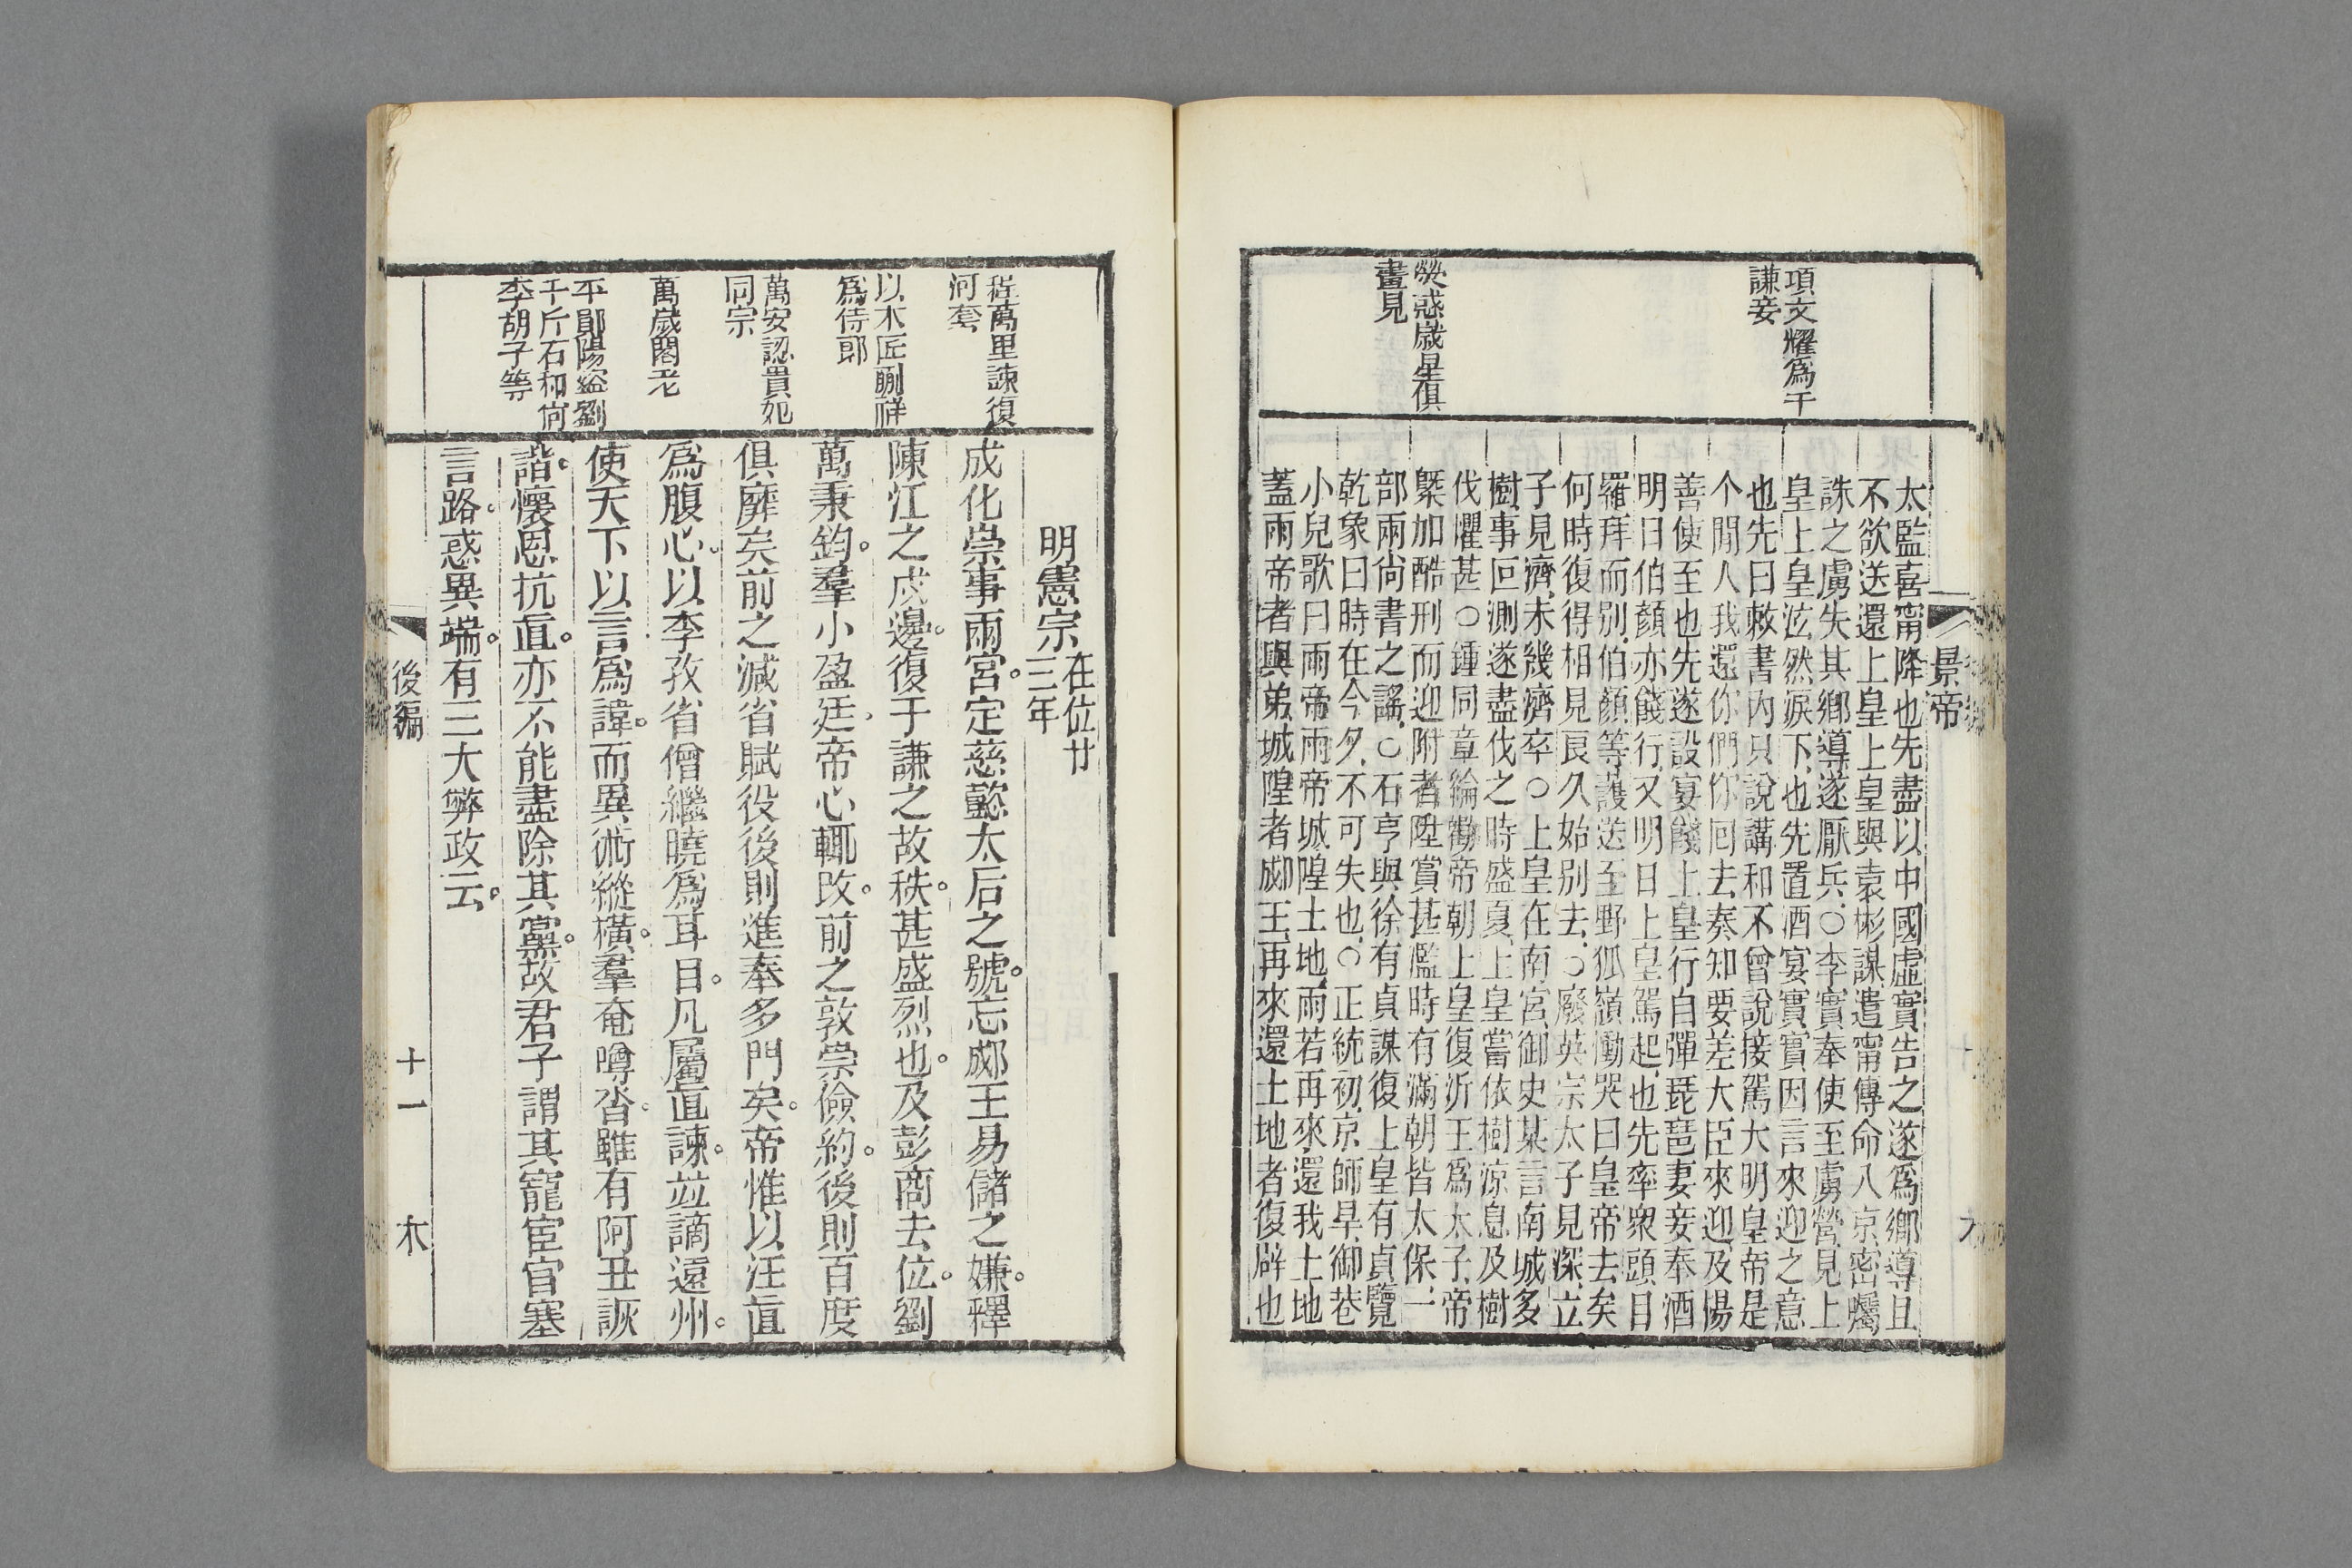 景帝
項文耀爲于
謙妾
熒惑歲星俱
晝見
太監喜甯降也先盡以中國虛實告之遂爲鄉導且
不欲送還上皇上皇與袁彬謀遣甯傳命入京密囑
誅之虜失其鄉導遂厭兵○李實奉使至虜營見上
皇上皇泫然淚下也先置酒宴實實因言來迎之意
也先曰敕書内只說講和不曾說接駕大明皇帝是
个閒人我還你們你回去奏知要差大臣來迎及楊
善使至也先遂設宴餞上皇行自彈琵琶妻妾奉酒
明日伯顏亦餞行又明日上皇駕起也先率衆頭目
羅拜而别伯顏等護送至野狐嶺慟哭曰皇帝去矣
何時復得相見良久始别去○廢英宗太子見深立
子見濟未幾濟卒○上皇在南宮御史某言南城多
樹事叵測遂盡伐之時盛夏上皇嘗依樹涼息及樹
伐懼甚○鍾同章綸勸帝朝上皇復沂王爲太子帝
槩加酷刑而迎附者陞賞甚濫時有滿朝皆太保一
部兩尚書之謠○石亨與徐有貞謀復上皇有貞覽
乾象曰時在今夕不可失也○正統初京師旱御巷
小兒歌曰雨帝雨帝城隍土地雨若再來還我土地
蓋雨帝者與弟城隍者郕王再來還土地者復辟也
程萬里諫復
河套
以木匠蒯祥
爲侍郎
萬安認貴妃
同宗
萬歲閣老
平鄖陽盜劉
千斤石和尚
李胡子等
明憲宗在位廿
三年
成化崇事兩宮定慈懿太后之號忘郕王易儲之嫌釋
陳江之戍邊復于謙之故秩甚盛烈也及彭商去位劉
萬秉鈞羣小盈廷帝心輒改前之敦崇儉約後則百度
俱靡矣前之減省賦役後則進奉多門矣帝惟以汪直
爲腹心以李孜省僧繼曉爲耳目凡屬直諫竝謫遠州
使天下以言爲諱而異術縱橫羣奄噂沓雖有阿丑詼
諧懷恩抗直亦不能盡除其黨故君子謂其寵宦官塞
言路惑異端有三大弊政云
後編
十一